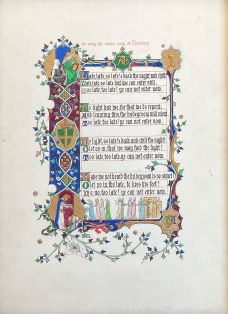 Late, late, so late! & dark the night and chill!
Late, late, so late! but we can enter still.
Too late, too late! ye can not enter now.
No light had we: for that we do repent;
And learning this, the bridegroom will relent.
Too late, too late! ye can not enter now.
No light; so late! & dark & chill the night!
O let us in, that we may find the light!
Too late, too late: ye can not enter now.
Have we not heard the bridegroom is so sweet?
O let us in, tho' late, to kiss his feet!
No, no, too late! ye can not enter now.